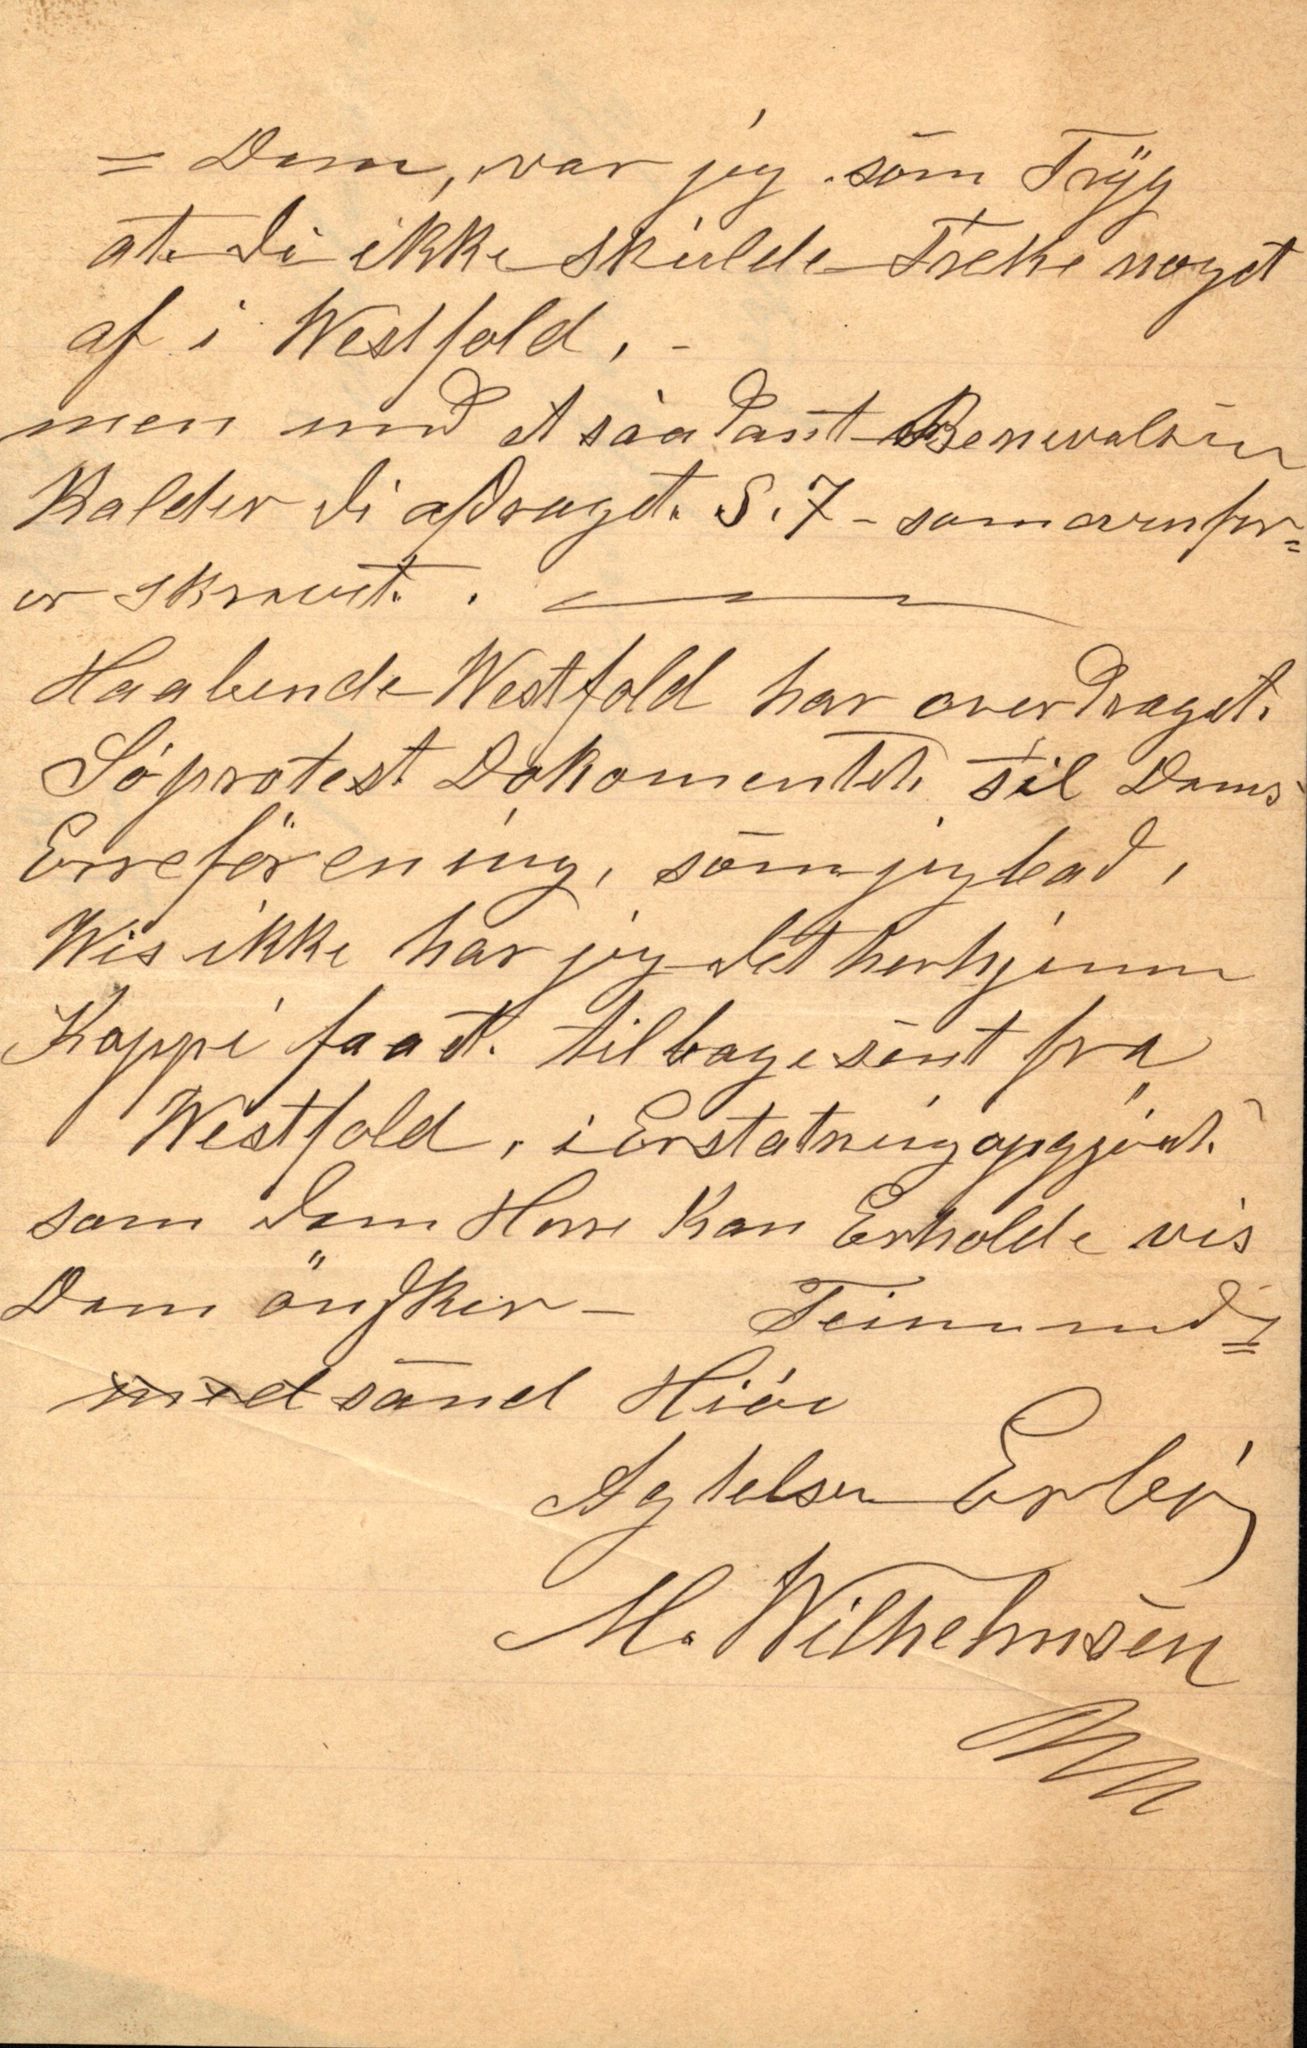 = Dem, var jeg som Tryg
at di ikke skulde Treke noget
af i Westfold, -
men med et saadant Benevalsen
Kalder di afdraget. S. 7 - som ovenfor=
er skrevet. .
Haabende Westfold har overdraget.
Söprotest Dokomentet. til Deres
Erreförening, som jeg bad,
Wis ikke har jeg det herhjemm
Koppi faaet. tilbagesent fra
Westfold, i Erstatningopgjöret.
som dem Herre Kan Erholde vis
Dem önsker -
sänd Hiöi
Agtelsen Erbö
M. Wilhelmsen